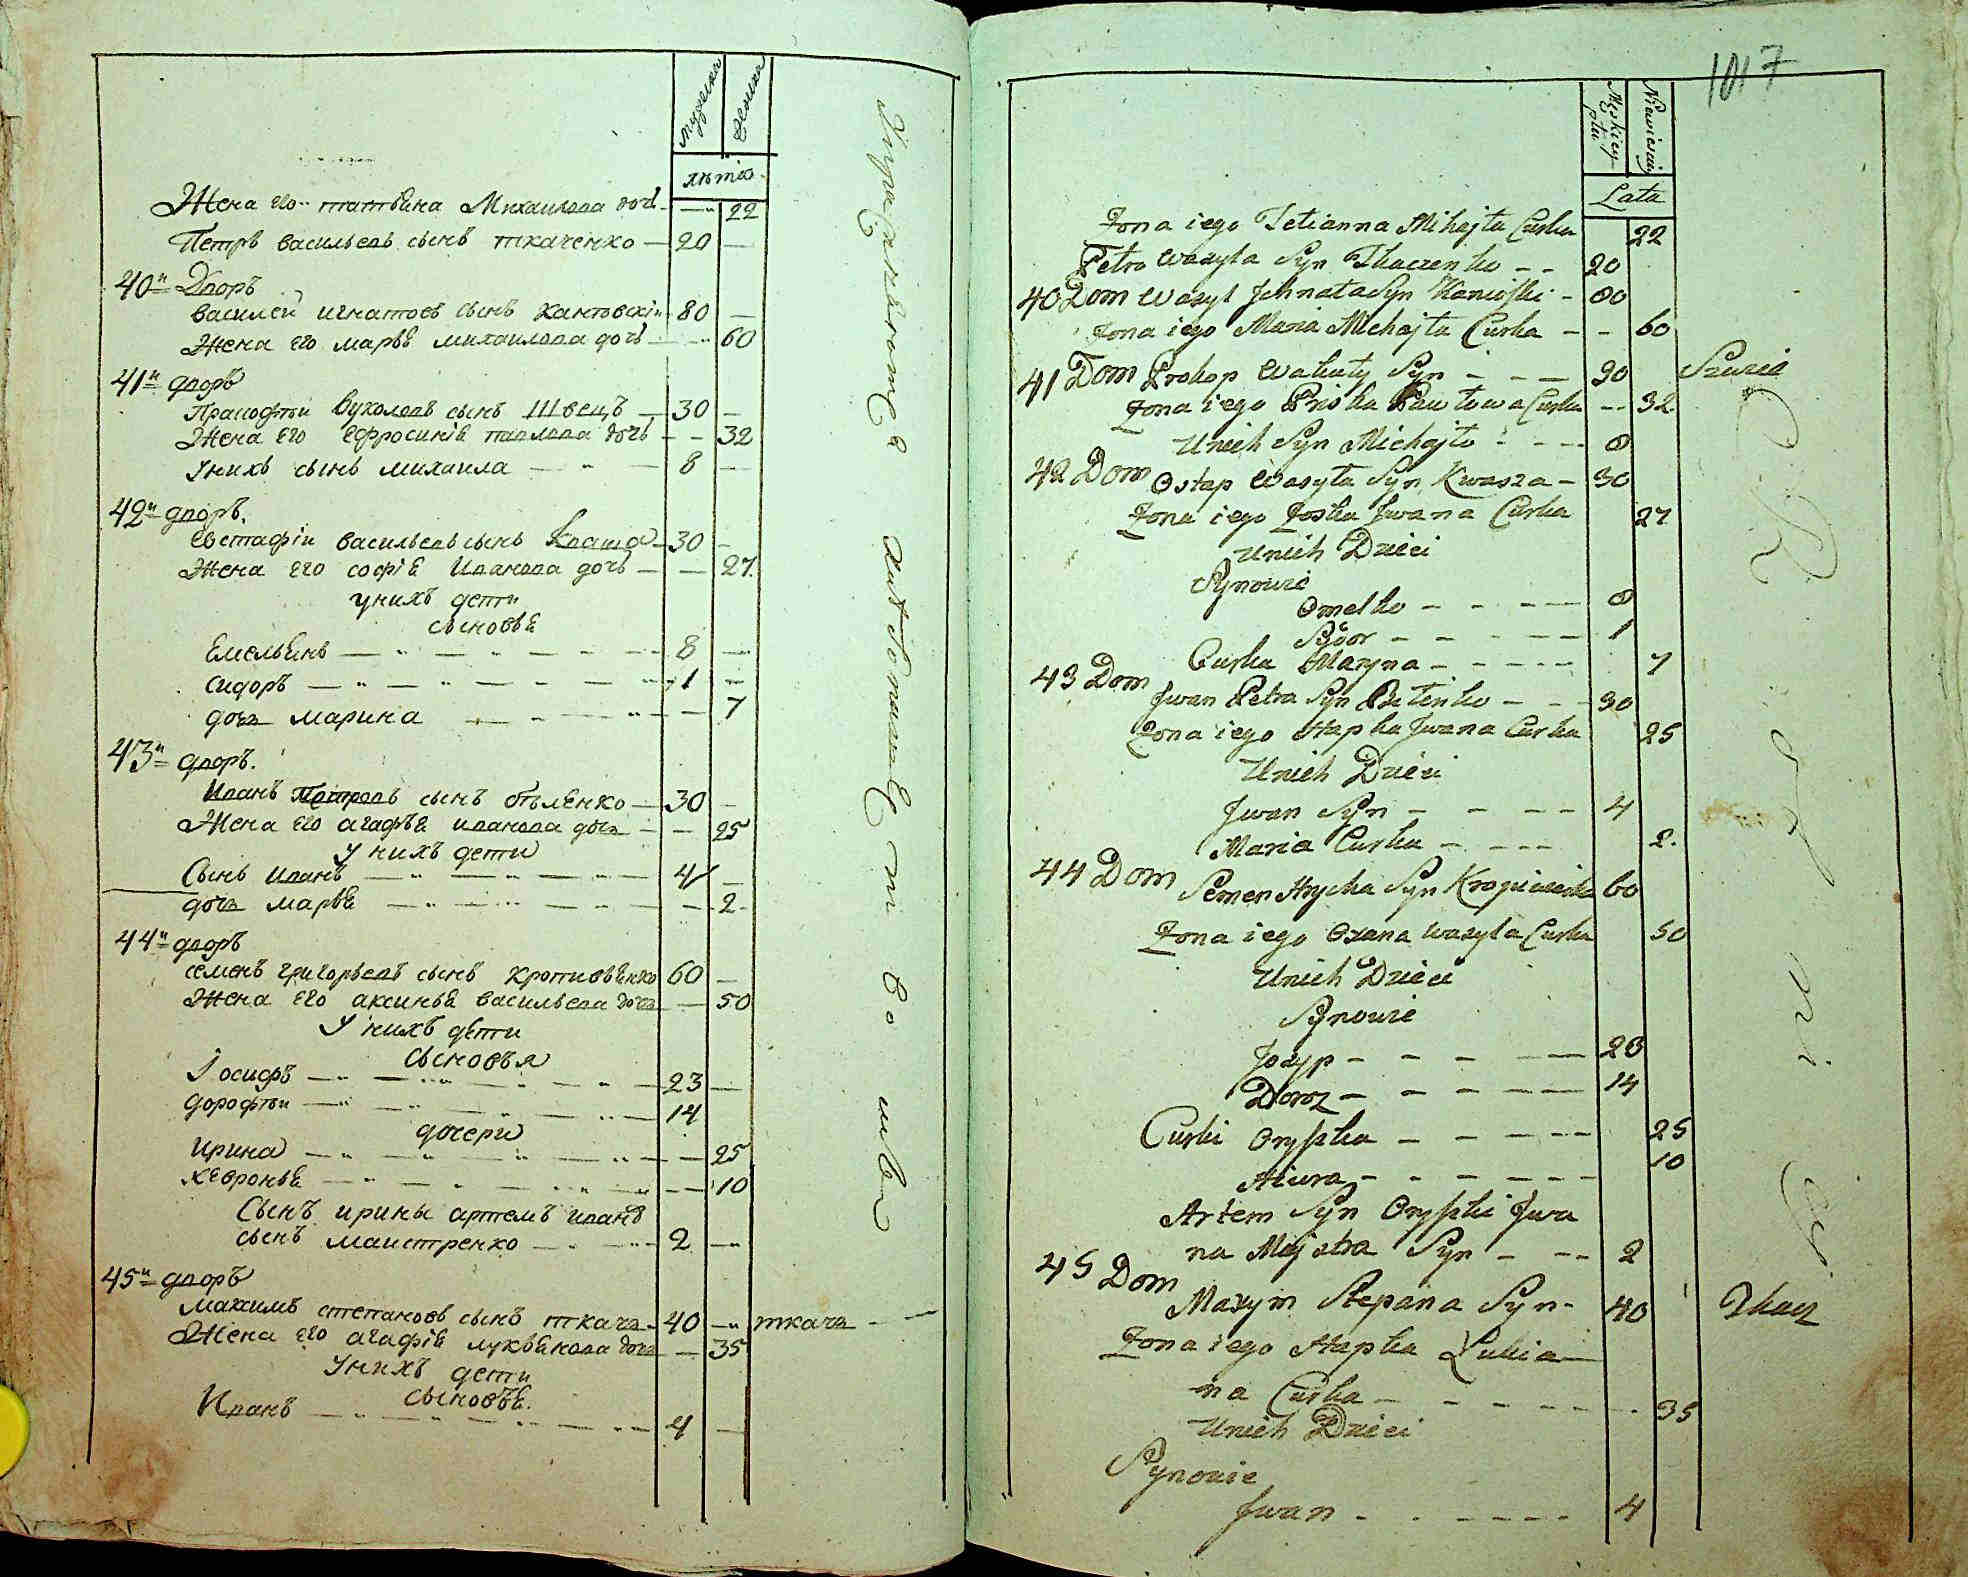 мужеска
женска
лѣта
Жена его татьяна Михаилова дочь — 22
Петръ васильевъ сынъ ткаченко — 20 —
40й Дворъ
василей игнатовъ сынъ кантовскій 80 —
Жена его марья михаилова дочь — 60
41й дворъ
Пракофѣй Вуколовъ сынъ Швецъ — 30 —
Жена его ефросинія павлова дочь — — 32
Унихъ сынъ михаила — 8 —
42й дворъ.
Евстафій васильевъ сынъ Кваша — 30 —
Жена его софія Иванова дочь — — 27.
унихъ дети
сыновья
Емельянъ — 8 —
сидоръ — 1 —
дочь марина — 7
43й дворъ.
Иванъ Петровъ сынъ бѣленко — 30 —
Жена его агафья иванова дочь — — 25
У нихъ дети
Сынъ иванъ — 4 —
дочь марья — 2
44й дворъ
семенъ григорьевъ сынъ кропивянко 60 —
Жена его аксинья васильева дочь — 50
У нихъ дети
сыновья
Iосифъ — 23 —
дорофѣй — 14
дочери
ирина — 25
хевронья — 10
Сынъ ирины артемъ иванъ
сынъ маистренко — 2 —
45й дворъ
Максимъ степановъ сынъ ткачъ — 40 — ткачь
Жена его агафія лукьянова дочь — 35
Унихъ дети
сыновья.
Иванъ — 4 —
1017
Męskiey płci
Niewieściej
Lata
Żona iego Tetianna Mihajła Curka 22
Petro Wasyla Syn Tkaczenko – – 20
40 Dom Wasyl Jhnata Syn – 80
Żona iego Maria Michajła Curka – – 60
41 Dom Prokop Wakuły Syn – – – 30 Szwiec
Żona iego Priska Pawłowa Curka – – 32
Unich Syn Michajło – – – 8
42 Dom Ostap Wasyla Syn Kwasza – 30
Żona iego Zoska Jwana Curka 27
Unich Dzieci
Synowie
Omelko – – – – 8
Sydor – – – – 1
Curka Maryna – – – – – 7
43 Dom
Jwan Petra Syn Bilenko – – – 30
Żona iego Hapka Jwana Curka 25
Unich Dzieci
Jwan Syn – – – – 4
Maria Curka – – – – 2.
44 Dom
Semen Hryćka Syn Kropiwienko 60
Żona iego Oxana Wasyla Curka 50
Unich Dzieci
Synowie
Jozyp – – – – 23
Dorosz – – – – – 14
Curki Oryszka – – – – – 25
– – – – – 10
Artem Syn Oryszki Jwa
na Majstra Syn – – – 2
45 Dom
Maxym Stepana Syn – 40 Tkacz
Żona iego Hapka Łukia
na Curka – – – – – 35
Unich Dzieci
Synowie
Jwan – – – – – – 4